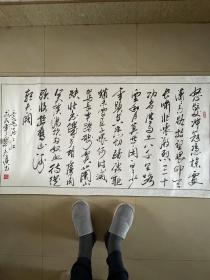 怒髮衝冠憑欄處
瀟瀟雨歇抬望眼仰
天長嘯壯懷激烈三十
功名塵與土八千里路
雲和月莫等閑白了少
年頭空悲切靖康恥
猶未雪臣子恨何時滅
駕長車踏破賀蘭山
缺壯志飢餐胡虜肉
笑談渴飲匈奴血待從
頭收拾舊山河
朝天闕